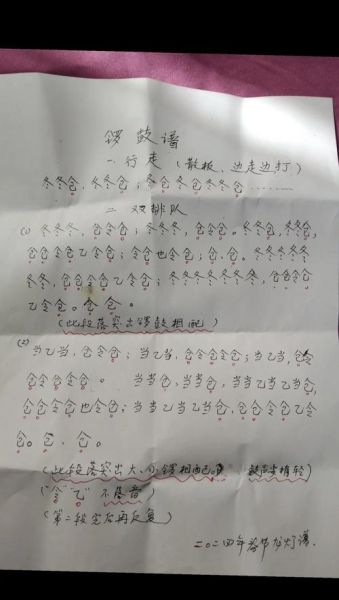 锣鼓谱
一 行走（散板、边走边打）
冬冬仓 冬冬仓；冬仓冬仓冬冬仓………
二 双排队
(1) 冬冬冬，仓令仓；冬冬冬，仓令仓。冬冬仓，冬冬仓，
仓仓令仓乙令仓；令仓也令仓；仓，仓。冬冬冬冬冬
冬冬，仓仓令仓乙令仓；冬冬冬冬冬冬冬，仓仓令仓
乙令仓。仓 仓。
（此段落突出锣鼓相配）
(2) 当乙当，仓令仓；当乙当，仓令仓令仓；当乙当，仓令
仓仓令仓令仓。 当当仓，当当仓，当当乙当乙当仓，
仓仓令仓也令仓；当当乙当乙当仓，仓仓令仓乙令
仓。仓．仓。
（此段落突出大、小锣相配 鼓声要稍轻）
（“令”“乙”不落音）
（第二段完后再反复）
二〇二四年 节龙灯谱．